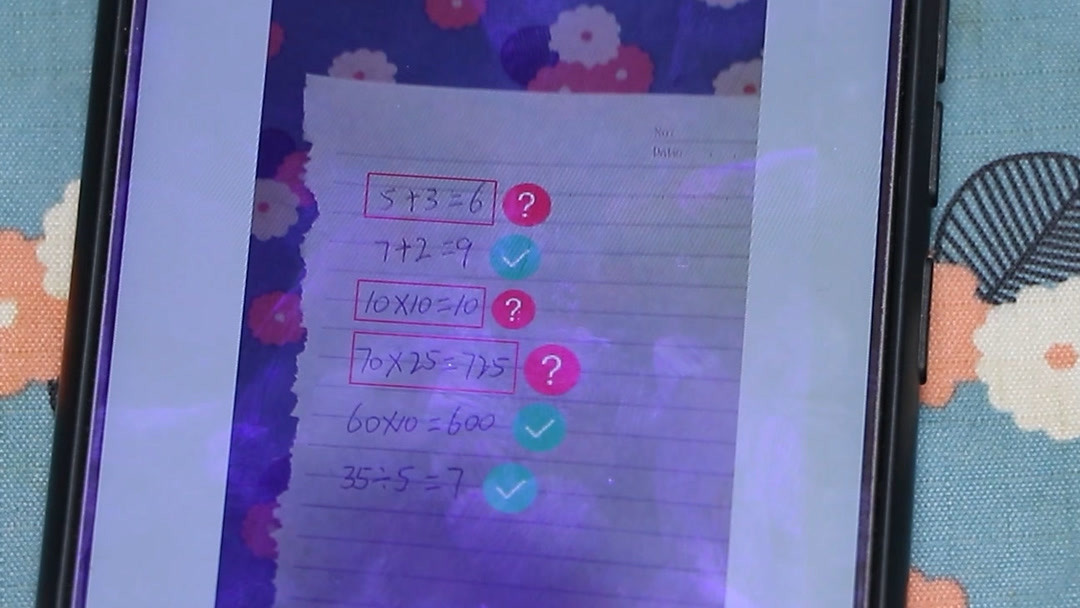 No:
Date:
5+3=6 ?
7+2=9
10×10=10 ?
70×25=725 ?
60×10=600
35÷5=7